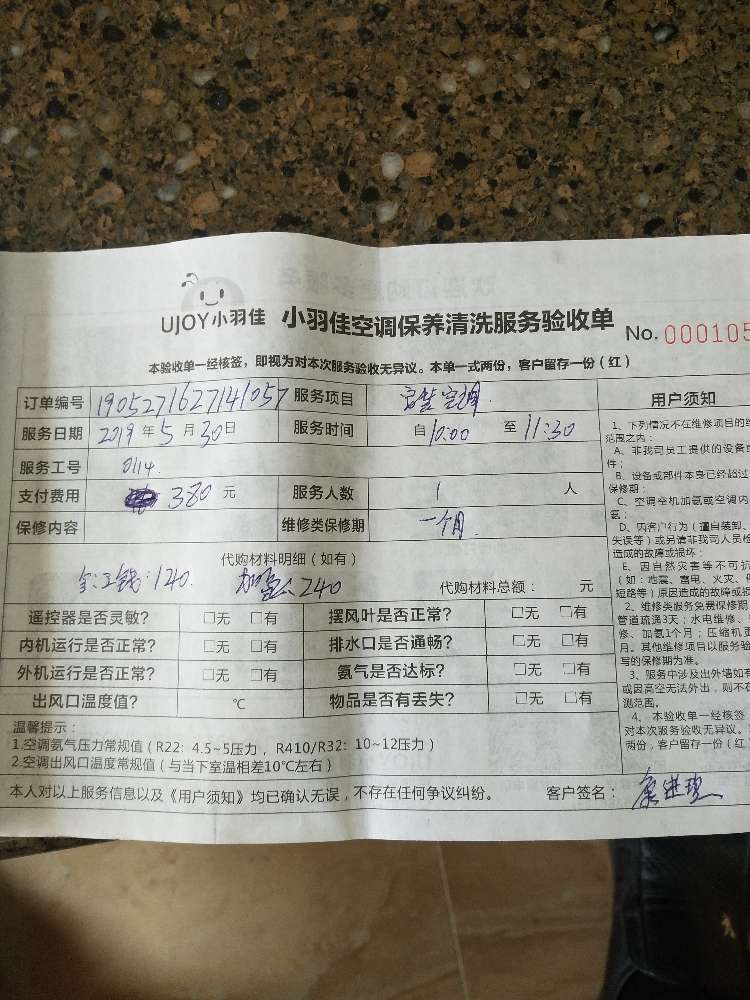 UJOY小羽佳 小羽佳空调保养清洗服务验收单 No.000105
本验收单一经核签，即视为对本次服务验收无异议。本单一式两份，客户留存一份（红）
订单编号 1905271627141057 服务项目 安装空调
服务日期 2019年5月30日 服务时间 自10:00至11:30
服务工号 0114.
支付费用 380元 服务人数 1人
保修内容 维修类保修期 一个月
代购材料明细（如有）
140. 240 代购材料总额： 元
遥控器是否灵敏？ □无 □有 摆风叶是否正常？ □无 □有
内机运行是否正常？ □无 □有 排水口是否通畅？ □无 □有
外机运行是否正常？ □无 □有 氨气是否达标？ □无 □有
出风口温度值？ ℃ 物品是否有丢失？ □无 □有
温馨提示：
1.空调氨气压力常规值（R22: 4.5~5压力，R410/R32: 10~12压力）
2.空调出风口温度常规值（与当下室温相差10℃左右）
本人对以上服务信息以及《用户须知》均已确认无误，不存在任何争议纠纷。 客户签名：
用户须知
1、下列情况不在维修项目的
范围之内：
A、非我司员工提供的设备
件；
B、设备或部件本身已经超过
保修期；
C、空调空机加氨或空调内
氨；
D、因客户行为（擅自装卸、
失误等）或另请非我司人员检
造成的故障或损坏；
E、因自然灾害等不可抗
（如：地震、雷电、火灾、
短路等）原因造成的故障或损
2、维修类服务免费保修期
管道疏通3天；水电维修、
修、加氨1个月；压缩机更
月。其他维修项目以服务验
写的保修期为准。
3、服务中涉及出外墙如有
或因高空无法外出，则不在
测范围。
4、本验收单一经核签
对本次服务验收无异议。
两份，客户留存一份（红